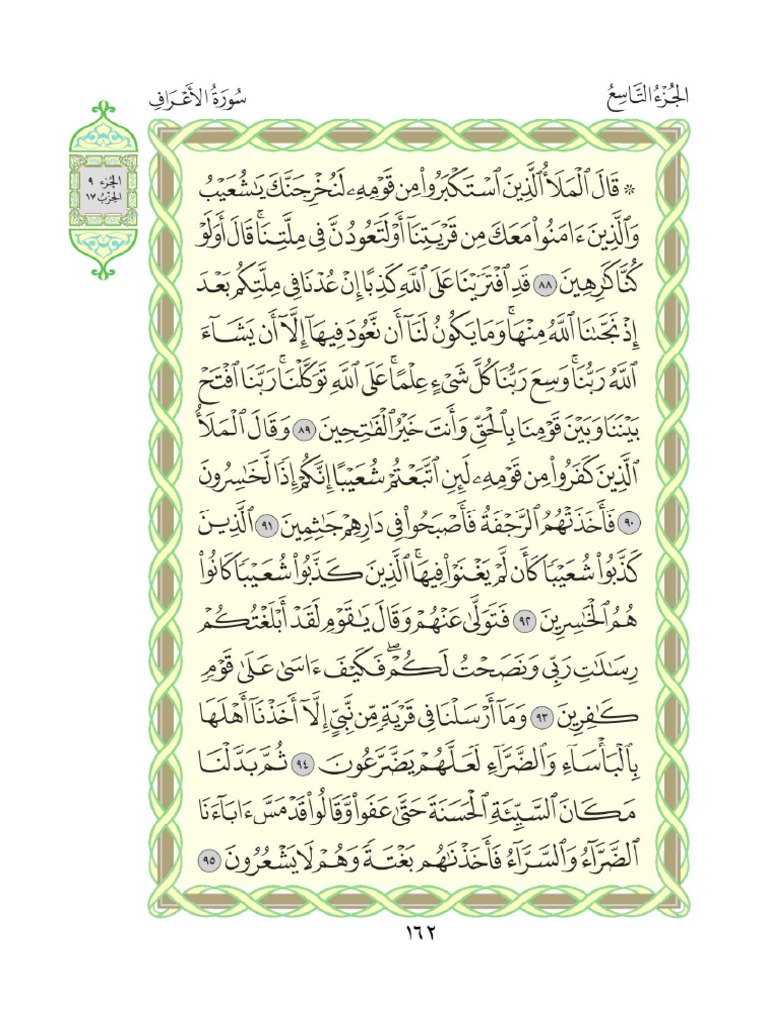 الجُزْءُ التَّاسِعُ
سُورَةُ الأَعْرَافِ
الجزء ٩
الحزب ١٧
* قَالَ ٱلْمَلَأُ ٱلَّذِينَ ٱسْتَكْبَرُوا۟ مِن قَوْمِهِۦ لَنُخْرِجَنَّكَ يَٰشُعَيْبُ
وَٱلَّذِينَ ءَامَنُوا۟ مَعَكَ مِن قَرْيَتِنَآ أَوْ لَتَعُودُنَّ فِى مِلَّتِنَا ۚ قَالَ أَوَلَوْ
كُنَّا كَٰرِهِينَ ٨٨ قَدِ ٱفْتَرَيْنَا عَلَى ٱللَّهِ كَذِبًا إِنْ عُدْنَا فِى مِلَّتِكُم بَعْدَ
إِذْ نَجَّىٰنَا ٱللَّهُ مِنْهَا ۚ وَمَا يَكُونُ لَنَآ أَن نَّعُودَ فِيهَآ إِلَّآ أَن يَشَآءَ
ٱللَّهُ رَبُّنَا ۚ وَسِعَ رَبُّنَا كُلَّ شَىْءٍ عِلْمًا ۚ عَلَى ٱللَّهِ تَوَكَّلْنَا ۚ رَبَّنَا ٱفْتَحْ
بَيْنَنَا وَبَيْنَ قَوْمِنَا بِٱلْحَقِّ وَأَنتَ خَيْرُ ٱلْفَٰتِحِينَ ٨٩ وَقَالَ ٱلْمَلَأُ
ٱلَّذِينَ كَفَرُوا۟ مِن قَوْمِهِۦ لَئِنِ ٱتَّبَعْتُمْ شُعَيْبًا إِنَّكُمْ إِذًا لَّخَٰسِرُونَ
٩٠ فَأَخَذَتْهُمُ ٱلرَّجْفَةُ فَأَصْبَحُوا۟ فِى دَارِهِمْ جَٰثِمِينَ ٩١ ٱلَّذِينَ
كَذَّبُوا۟ شُعَيْبًا كَأَن لَّمْ يَغْنَوْا۟ فِيهَا ۚ ٱلَّذِينَ كَذَّبُوا۟ شُعَيْبًا كَانُوا۟
هُمُ ٱلْخَٰسِرِينَ ٩٢ فَتَوَلَّىٰ عَنْهُمْ وَقَالَ يَٰقَوْمِ لَقَدْ أَبْلَغْتُكُمْ
رِسَٰلَٰتِ رَبِّى وَنَصَحْتُ لَكُمْ ۖ فَكَيْفَ ءَاسَىٰ عَلَىٰ قَوْمٍ
كَٰفِرِينَ ٩٣ وَمَآ أَرْسَلْنَا فِى قَرْيَةٍ مِّن نَّبِىٍّ إِلَّآ أَخَذْنَآ أَهْلَهَا
بِٱلْبَأْسَآءِ وَٱلضَّرَّآءِ لَعَلَّهُمْ يَضَّرَّعُونَ ٩٤ ثُمَّ بَدَّلْنَا
مَكَانَ ٱلسَّيِّئَةِ ٱلْحَسَنَةَ حَتَّىٰ عَفَوا۟ وَّقَالُوا۟ قَدْ مَسَّ ءَابَآءَنَا
ٱلضَّرَّآءُ وَٱلسَّرَّآءُ فَأَخَذْنَٰهُم بَغْتَةً وَهُمْ لَا يَشْعُرُونَ ٩٥
١٦٢